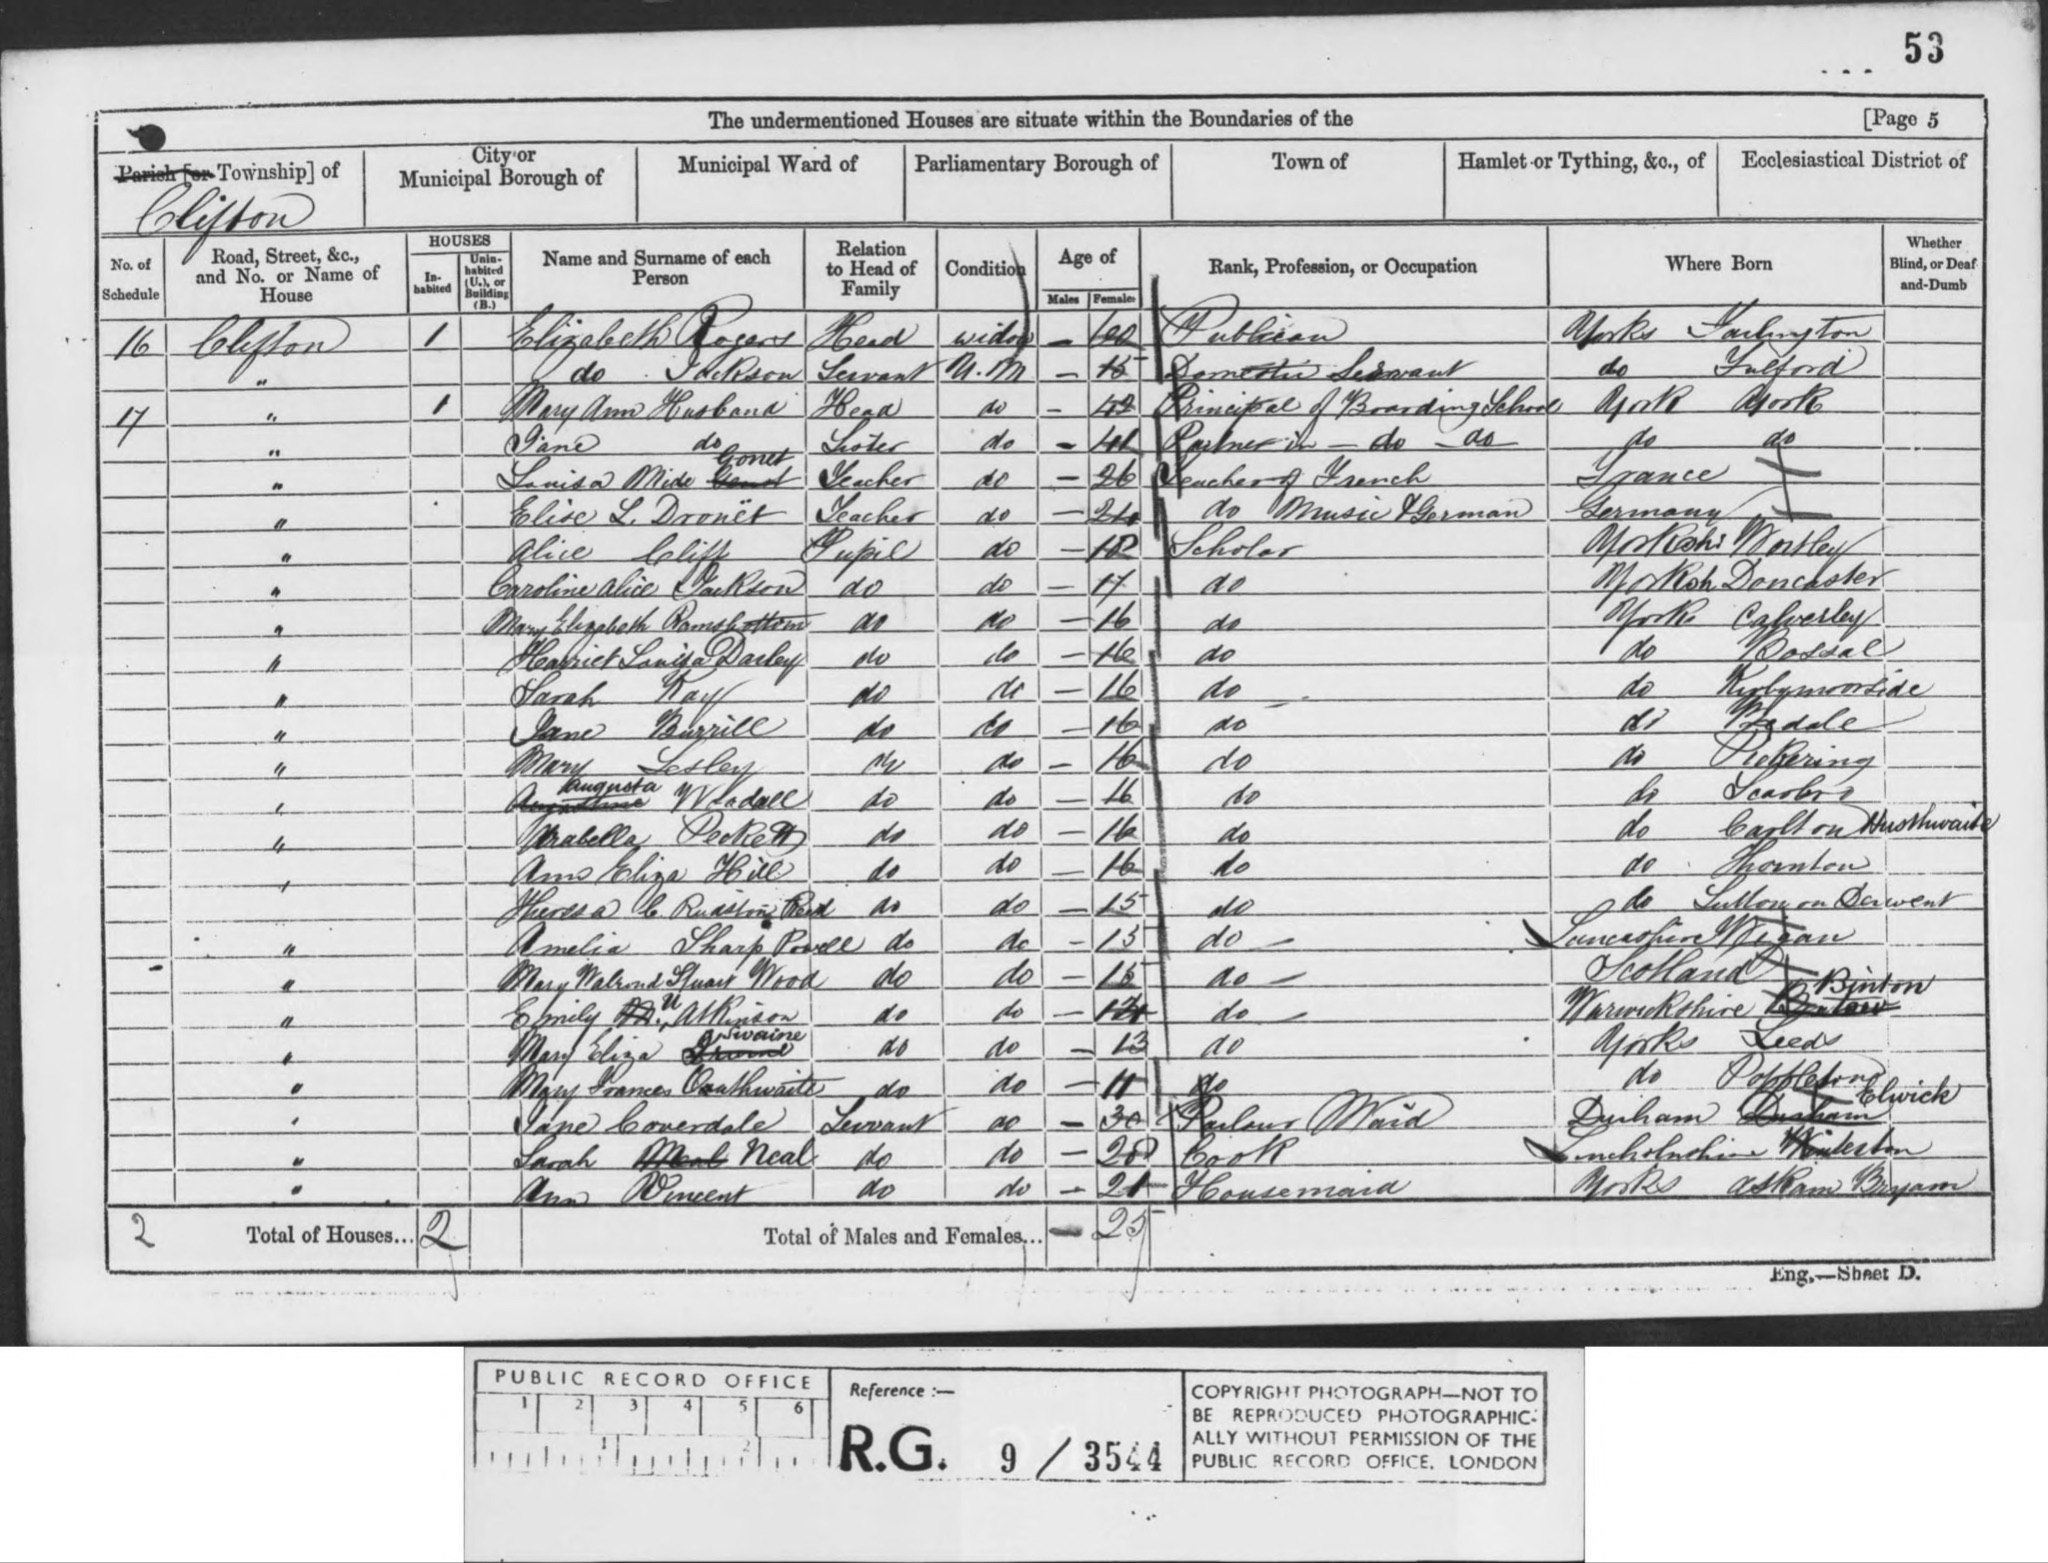 53
The undermentioned Houses are situate within the Boundaries of the [Page 5
Parish [or Township] of City or Municipal Borough of Municipal Ward of Parliamentary Borough of Town of Hamlet or Tything, &c., of Ecclesiastical District of
Clifton
No. of Schedule Road, Street, &c., and No. or Name of House HOUSES Inhabited Uninhabited (U.), or Building (B.) Name and Surname of each Person Relation to Head of Family Condition Age of Males Females Rank, Profession, or Occupation Where Born Whether Blind, or Deaf-and-Dumb
16 Clifton 1 Elizabeth Rogers Head widow – Publican Yorks
" do Jackson Servant U.M – 15 Domestic Servant do Fulford
17 " 1 Mary Ann Husband Head do – Principal of Boarding School York York
" Jane do Sister do – Partner in – do – do do do
" Louisa Gonet Teacher do – 26 Teacher of French France
" Elise L. Dronët Teacher do – do Music & German Germany
" Alice Cliff Pupil do – 18 Scholar Yorkshi Wortley
" Caroline Alice Jackson do do – 17 do Yorksh Doncaster
" Mary Elizabeth Ramsbottom do do – 16 do Yorks Calverley
" Harriet Louisa Darley do do – 16 do do Bossal
" Sarah Kay do do – 16 do do Kirbymoorside
" Jane Burrill do do – 16 do do Bedale
" Mary Lesley do do – 16 do do Pickering
" Augusta Woodall do do – 16 do do Scarbro
" Arabella Peckett do do – 16 do do Carlton Husthwaite
" Ann Eliza Hill do do – 16 do do Thornton
Theresa C. Read do do – 15 do do Sutton on Derwent
" Amelia Sharp Powell do do – 15 do – Lancashire Wigan
" Mary Walrond Stuart Wood do do – 15 do – Scotland
" Emily U Atkinson do do – do – Warwickshire Binton
" Mary Eliza Swaine do do – 13 do Yorks Leeds
" Mary Frances do do – 11 do do Poppleton
" Jane Coverdale Servant do – 30 Parlour Maid Durham Durham Elwick
" Sarah Neal Neal do do – 28 Cook Lincholnshire
" Ann Vincent do do – 21 Housemaid Yorks Askam Bryam
2 Total of Houses... 2 Total of Males and Females... – 25
Eng.—Sheet D.
PUBLIC RECORD OFFICE
1 2 3 4 5 6
1 2
Reference :—
R.G. 9 / 3544
COPYRIGHT PHOTOGRAPH—NOT TO
BE REPRODUCED PHOTOGRAPHIC-
ALLY WITHOUT PERMISSION OF THE
PUBLIC RECORD OFFICE, LONDON